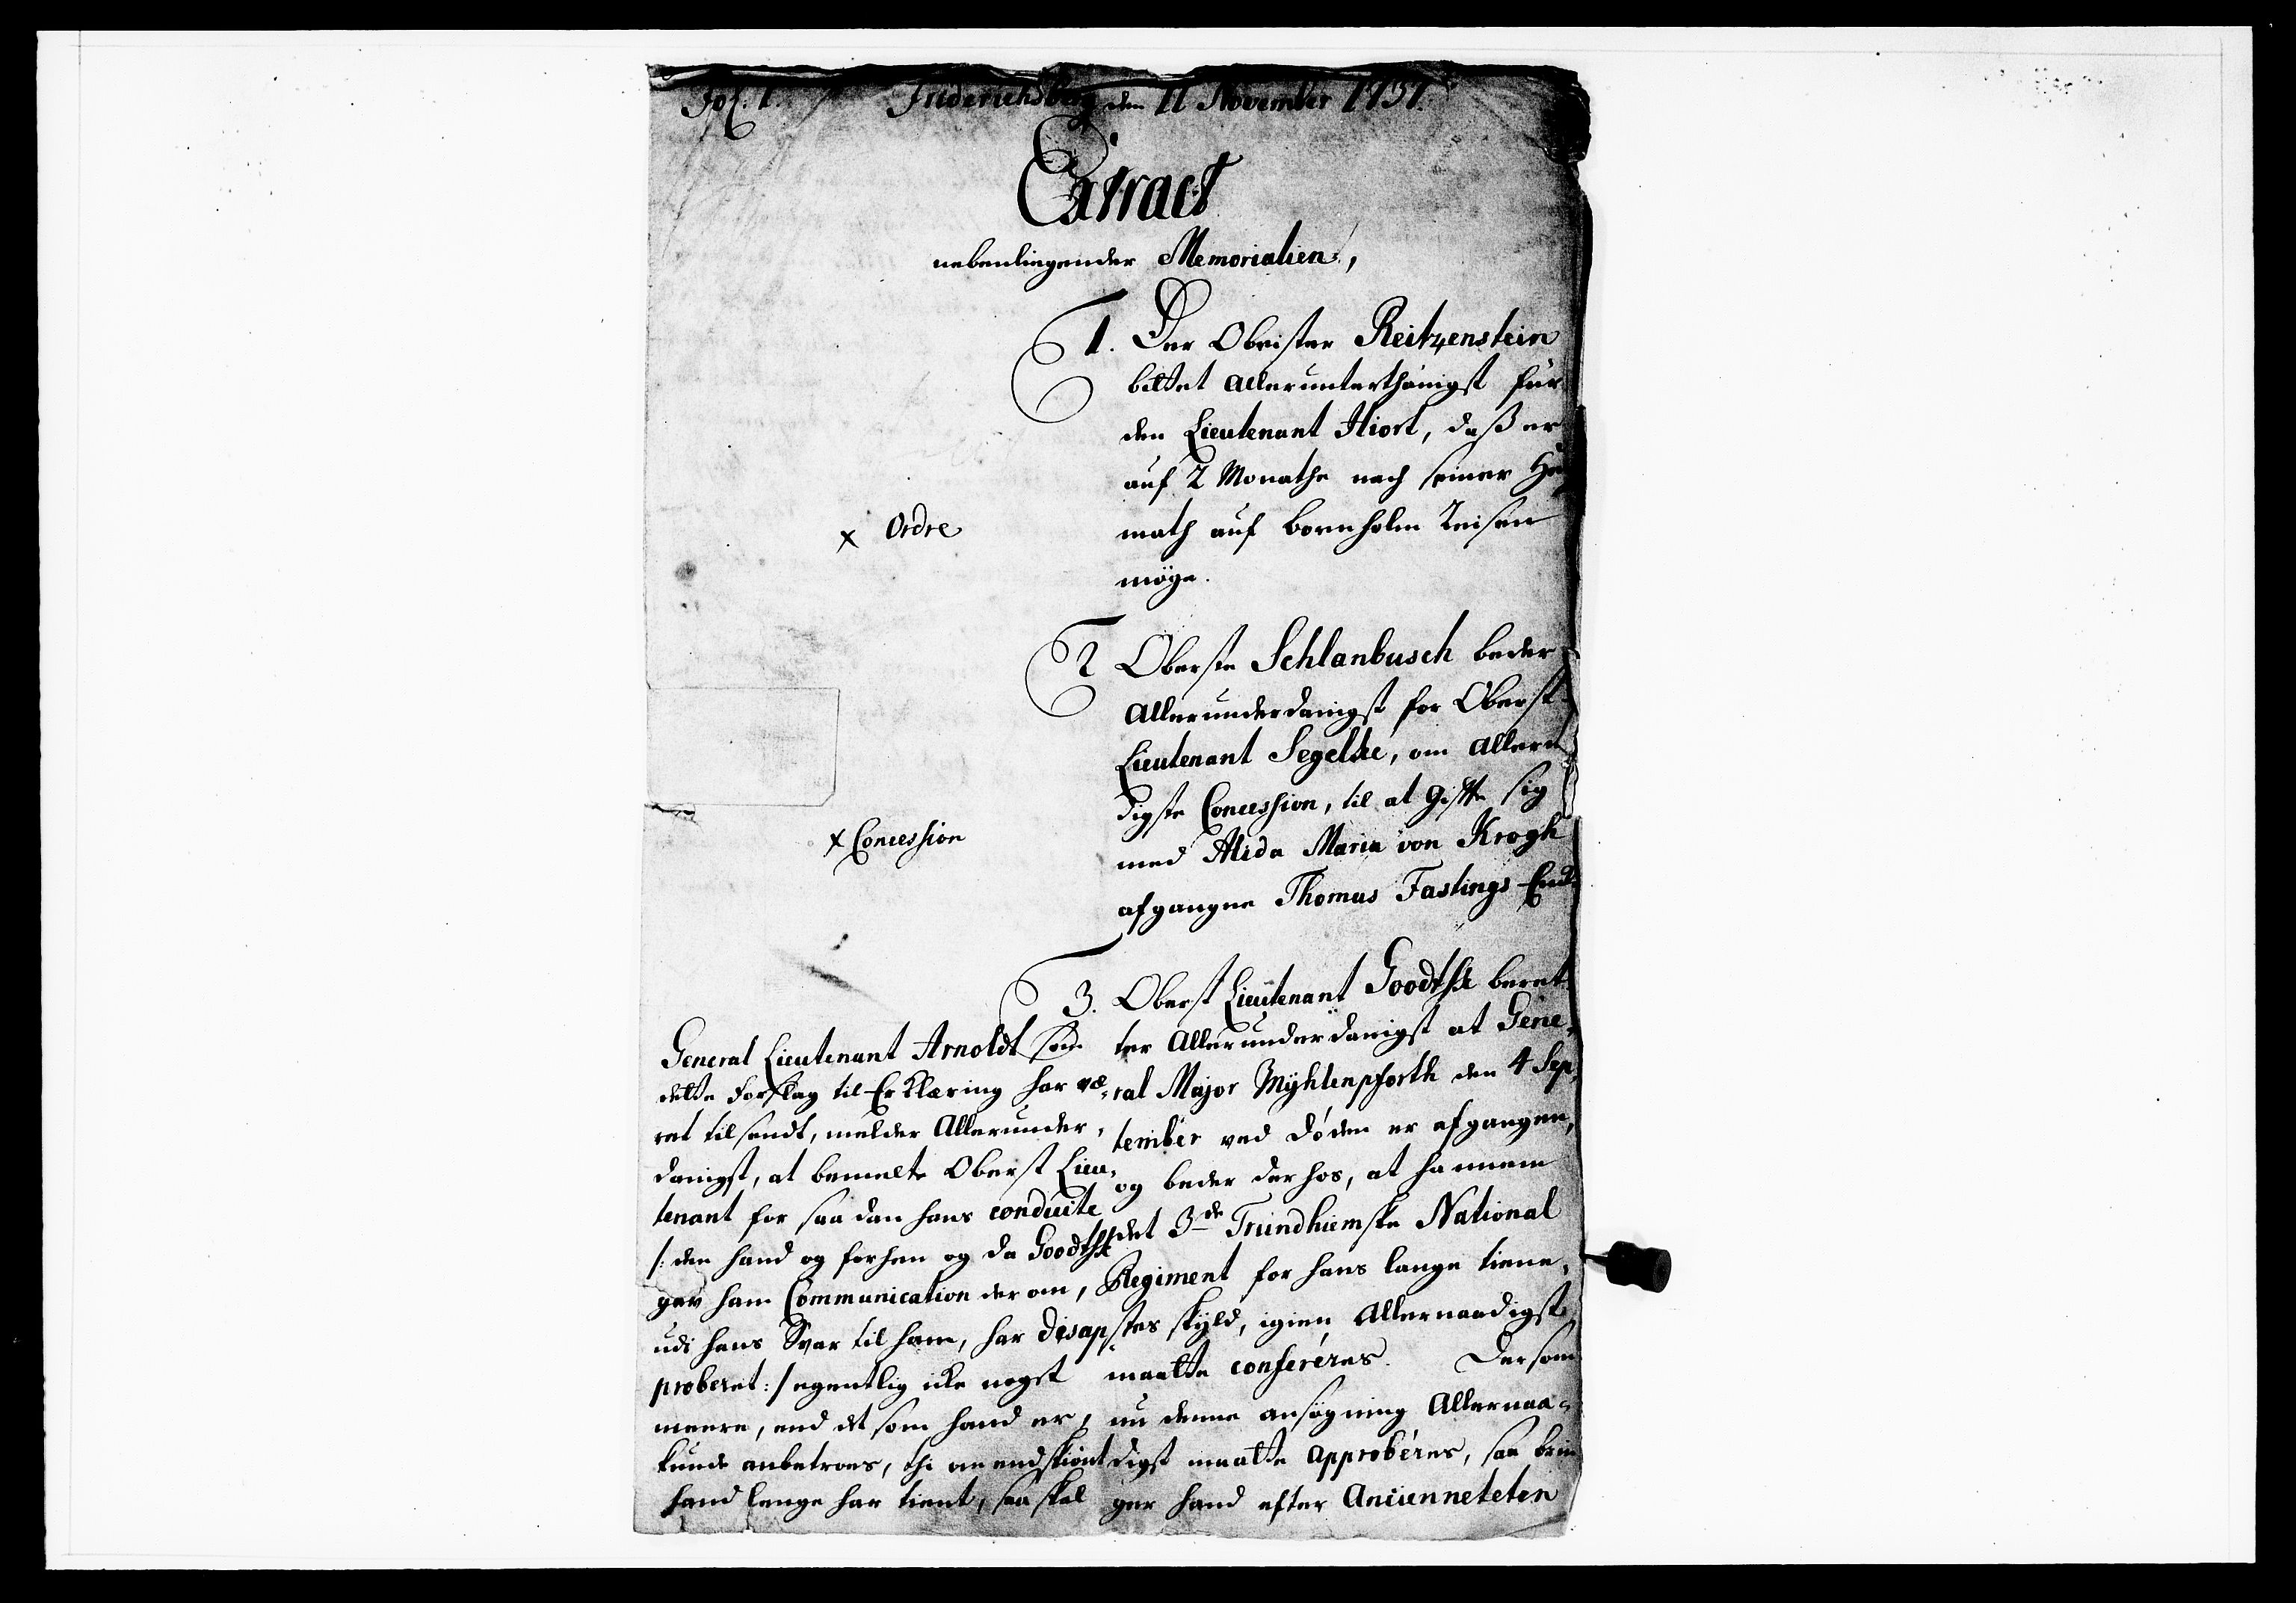 Fol. 1. Friderichsberg den 11 November 1737.
Extract
nebenliegender Memorialien,
1. Der Obrister Reitzenstein
bittet allerunterthänigst für
den Lieutenant Hiort, daß er
auf 2 Monathe nach seiner
math auf Bornholm Reisen
möge.
x Ordre
2 Oberste Schlanbusch beder
Allerunderdanigst for Oberst
Lieutenant Segelke, om Allern
digste Concession, til at Gifte sig
med Alida Maria von Krogh
afgangne Thomas Fastings
x Concession
3. Oberst Lieutenant Goodthst beret
ter Allerunderdanigst at Gene,
ral Major Mÿhlenphorth den 4 Sep,
tember ved døden er afgangen,
og beder derhos, at hannem
det 3de Trundhiemske National
Regiment for hans lange tiene,
stes skyld, igien Allernaadigst
maatte conferéres. Dersom
nu denne ansøgning Allernaa=
digst maatte approbéres, saa brin
ger hand efter Ancienneteten
General Lieutenant Arnoldt som
dette Forslag til Erklæring har væ,
ret tilsendt, melder Allerunder,
danigst, at bemelte Oberst Lieu,
tenant for saadan hans conduite
/: den hand og forhen og da Goodthst
gav ham Communication derom,
udi hans Svar til ham, har disap
proberet :/ egentlig icke nogst
meere, end det som hand er,
kunde anbetroes, thi omendskiönt
hand lenge har tient, saa skal